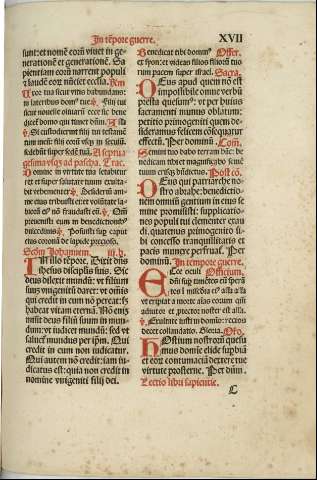 In tẽpore guerre. XVII
sunt: et nomẽ eorũ viuet in ge-
nerationẽ et generationẽ. Sa
pientiam eorũ narrent populi
⁊ laudẽ eorũ nũciet ecclesia.
xor tua sicut vitis habundans:
in lateribus domꝰ tue ℣. Filij tui
sicut nouelle oliuarũ: ecce sic bene
dicet̃ homo qui timet dñm. Alla
℣. Si custodierint filij tui testamẽ
tum meũ: filij eorũ vsqꝫ in seculũ.
sedebũt super sedẽ tuã. A septua
gesima vsqꝫ ad pascha. Trac.
Domine in virtute tua letabitur
rex et super salutare tuum exulta-
bit vehementer ℣. Desideriũ ani-
me eius tribuisti ei: et volũtate la-
biorũ eiꝰ nõ fraudasti eum ℣. Qm̃
preuenisti eum in benedictionibꝰ
dulcedinis. ℣. Posuisti sup̱ caput
eius coronã de lapide precioso.
Scḋm Johannem. iij. b.
In illo tẽpore. Dixit dñs
iħesus discipulis suis. Sic
deus dilexit mundũ: vt filium
suuʒ vnigenitũ daret: vt omnis
qui credit in eum nõ pereat: sʒ
habeat vitam eternã. Nõ eniʒ
misit deus filiũ suum in mun-
dum: vt iudicet mundũ: sed vt
saluet̃ mundus per ip̃m. Qui
credit in eum non iudicatur.
Qui autem nõ credit: iam iu-
dicatus est: quia non credit in
nomine vnigeniti filij dei.
Benedicat tibi dominꝰ Offer.
et syon: et videas filios filiorũ tuo
rum pacem super israel. Sacra.
Deus apud quem nõ est
impossibile omne verbũ
presta quesumꝰ: vt per huius
sacramenti munus oblatum:
petitio primogeniti quem de-
sideramus felicem cõsequatur
effectũ. Per dominũ. Com.
Semini tuo dabo terram hãc: be-
nedicam tibi et magnificabo semẽ
tuum crisqꝫ bñdictus. Post cõ.
Deus qui patriarche no-
stro abrahe: benedictio-
nem omniũ gentium in eius se
mine promisisti: supplicatio-
nes populi tui clementer exau
di. quatenus primogenito si-
bi concesso tranquillitatis et
pacis munere perfruat̃. Per
dominũ. In tempore guerre.
Ecce oculi Officium.
dñi suꝑ timẽtes eũ sperã
tes ĩ miscḋia eiꝰ alla alla
vt eripiat a morte aĩas eorum: qm̃
adiutor et ꝓtector noster est alla.
℣. Exultate iusti in domĩo: rectos
decet collaudatio. Gloria. Oro.
Hostium nostrorũ quesu
mus domĩe elide supbiã
et eorum contumaciã dextere tue
virtute prosterne. Per dñm.
Lectio libri sapientie.
C